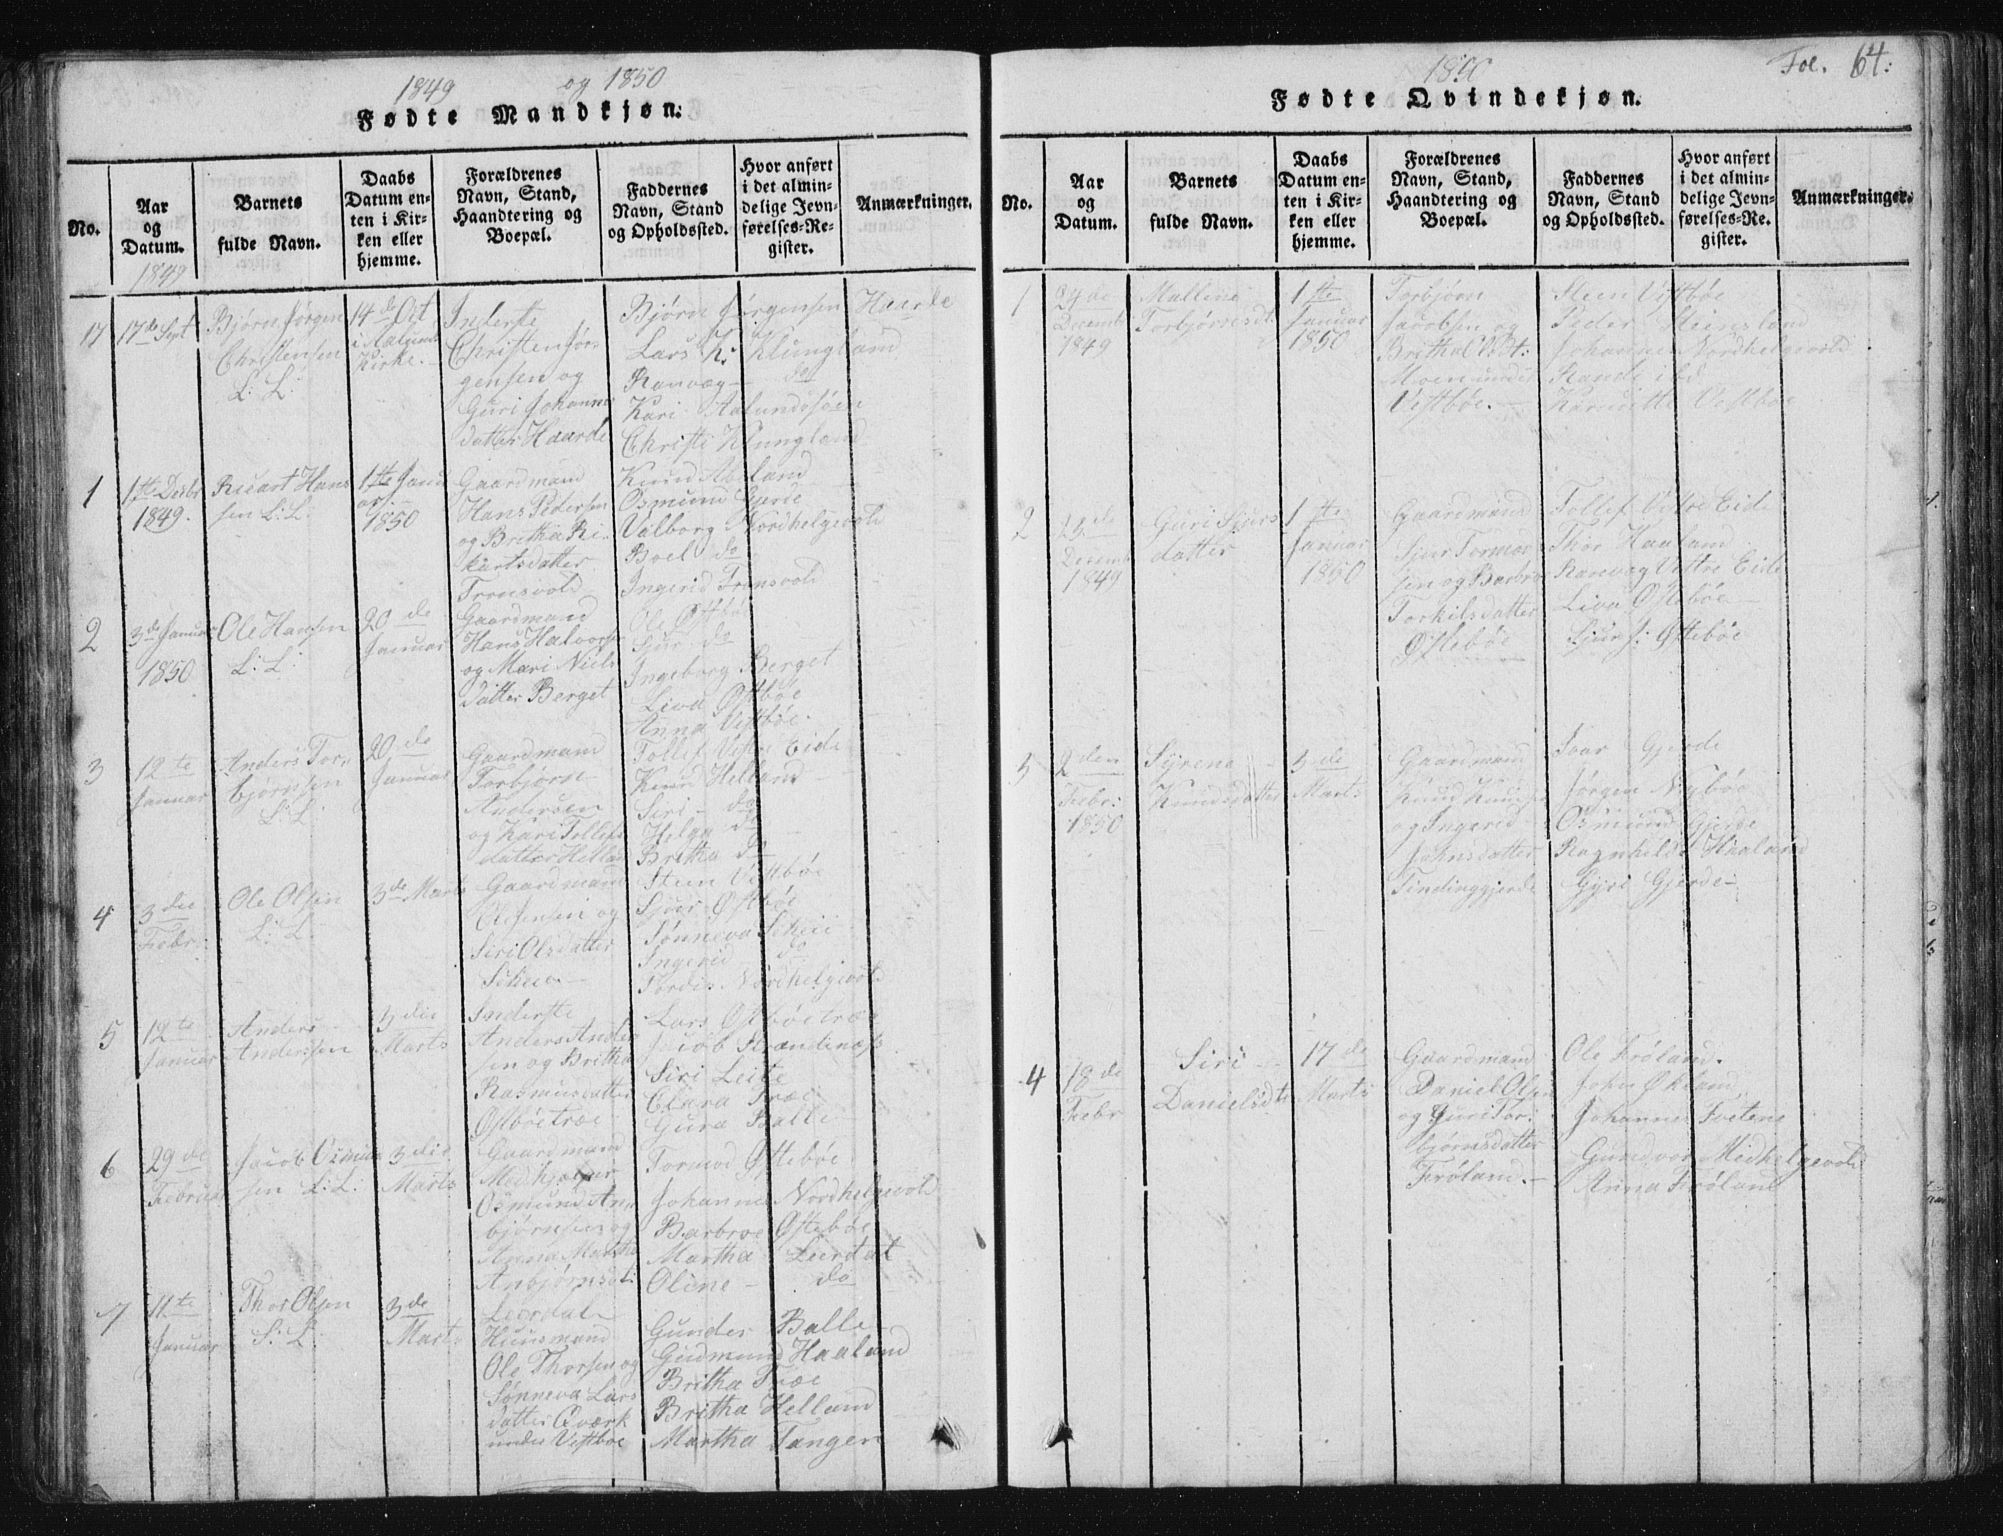 1849 og 1850
Fødte Mandkjøn:
No.
Aar og Datum.
Barnets fulde Navn.
Daabs Datum enten i Kirken eller hjemme.
Forældrenes Navn, Stand, Haandtering og Boepæl.
Faddernes Navn, Stand og Opholdssted.
Hvor anført i det almindelige Jevnførelses-Register.
Anmærkninger.
1849
17
17de Sept
Bjørn Jørgen
Christensen
L: L:
14de Oct
Kirke.
Inderste
Christen Jør
gensen og
Guri Johannes
datter Haarde
Bjørn Jørgensen Haarde
Lars K: Klungland
Ranvæg — do
Kari Aalundsøen
Christi Klungland
1
1te Desbr
1849.
Ricart Hans
sen L: L.
1te Janu
ar
1850
Gaardmand
Hans Pedersen
og Britha Ri
kartsdatter
Tronsvold
Knud Abeland
Osmund Gjerde
Valborg Nordhelgevold
Boel do
Ingerid Tronsvold
2
3de Januar
1850
Ole Hansen
L: L
20de
Januar
Gaardmand
Hans Halvorsen
og Mari Niels
datter Berget
Ole Østbø
Sjur do
Ingeborg Berget
Liva Østbøe
Anna Vestbøe.
3
12te
Januar
Anders Tor
bjørnsen
L: L
20de
Januar
Gaardmand
Torbjørn
Andersen
og Kari Tollefs
datter Helland
Tollef Vestre Eide
Knud Helland
Siri — do
Helga do
Britha do
4
3die
Febr:
Ole Olsen
L: L.
3de Marts
Gaardmand
Ole Jensen og
Siri Olsdatter
Scheie
Steen Vestbøe
Sjur Østbøe
Sønneva Scheie
Ingerid do
Tordis Nordhelgevold
5
12te
Januar
Anders
Anderssen
3die
Marts
Inderste
Anders Ander
sen og Britha
Rasmusdatter
Østbøetræe
Lars Østbøetræ
Jacob Strandenæs
Siri Leite
Clara Træe
Gura Balle
6
29de
Februar
Jacob Osmun
sen L: L.
3die
Marts
Gaardmand
Medhjælper
Osmund An
bjørnsen og
Anna Martha
Anbjørnsdt:
Leerdal
Tormod Østebøe
Johannes Nordhelgevold
Barbroe Østebøe
Martha Leerdal
Oline — do
7
11te
Januar
Thor Olsen
L: L.
3de
Marts
Huusmand
Ole Thorsen og
Sønneva Lars
datter Qværk
under Vestbøe
Gunder Balle
Gudmund Haaland
Britha Træe
Britha Helland
Martha Tangen
1850
Foe. 64:
Fødte Qvindekjøn.
No.
Aar og Datum.
Barnets fulde Navn.
Daabs Datum enten i Kirken eller hjemme.
Forældrenes Navn, Stand, Haandtering og Boepæl.
Faddernes Navn, Stand og Opholdssted.
Hvor anført i det almindelige Jevnførelses-Register.
Anmærkninger.
1
24de
Decemb
1849
Malline
Torbjørnsdt
1te
Januar
1850
Torbjørn
Jacobsen og
Britha
Moen under
Vestbøe.
Steen Vestbøe
Peder Steinsland
Johannes Nordhelgevold
Vestbøe
2
Decemb
1849
Guri Sjurs
datter
1te
Januar
1850
Gaardmand
Sjur Tormod
sen og Barbroe
Torkilsdatter
Østebøe
Tollef Vestre Eide
Thor Haaland
Ranvæg Vestre Eide
Liva Østebøe
Sjur J: Østebøe
3
2den
Febr:
1850
Syrene
Knudsdatter
3de
Marts
Gaardmand
Knud Knudsen
og Ingerid
Johnsdatter
Tindinggjerde
Ivar Gjerde
Jørgen Nybøe
Osmund Gjerde
Ragnhilde Haaland
Gyri Gjerde
4
18de
Febr
Siri
Danielsdt
17de
Marts
Gaardmand
Daniel Olsen
og Guri Tor
bjørnsdatter
Frøland.
Ole Frøland.
John Økland
Johannes Tvetene
Gundvor Medhelgevold
Anna Frøland